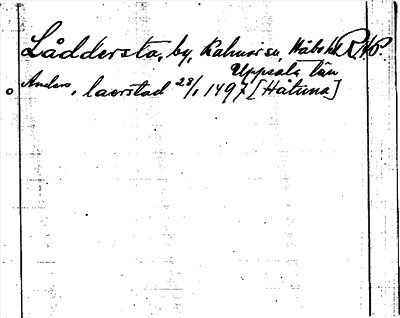 Låddersta, by, Kalmar sn, Håbo hd RAP.
Uppsala län
Anders, laerstad 28/1 1497 [Håtuna]